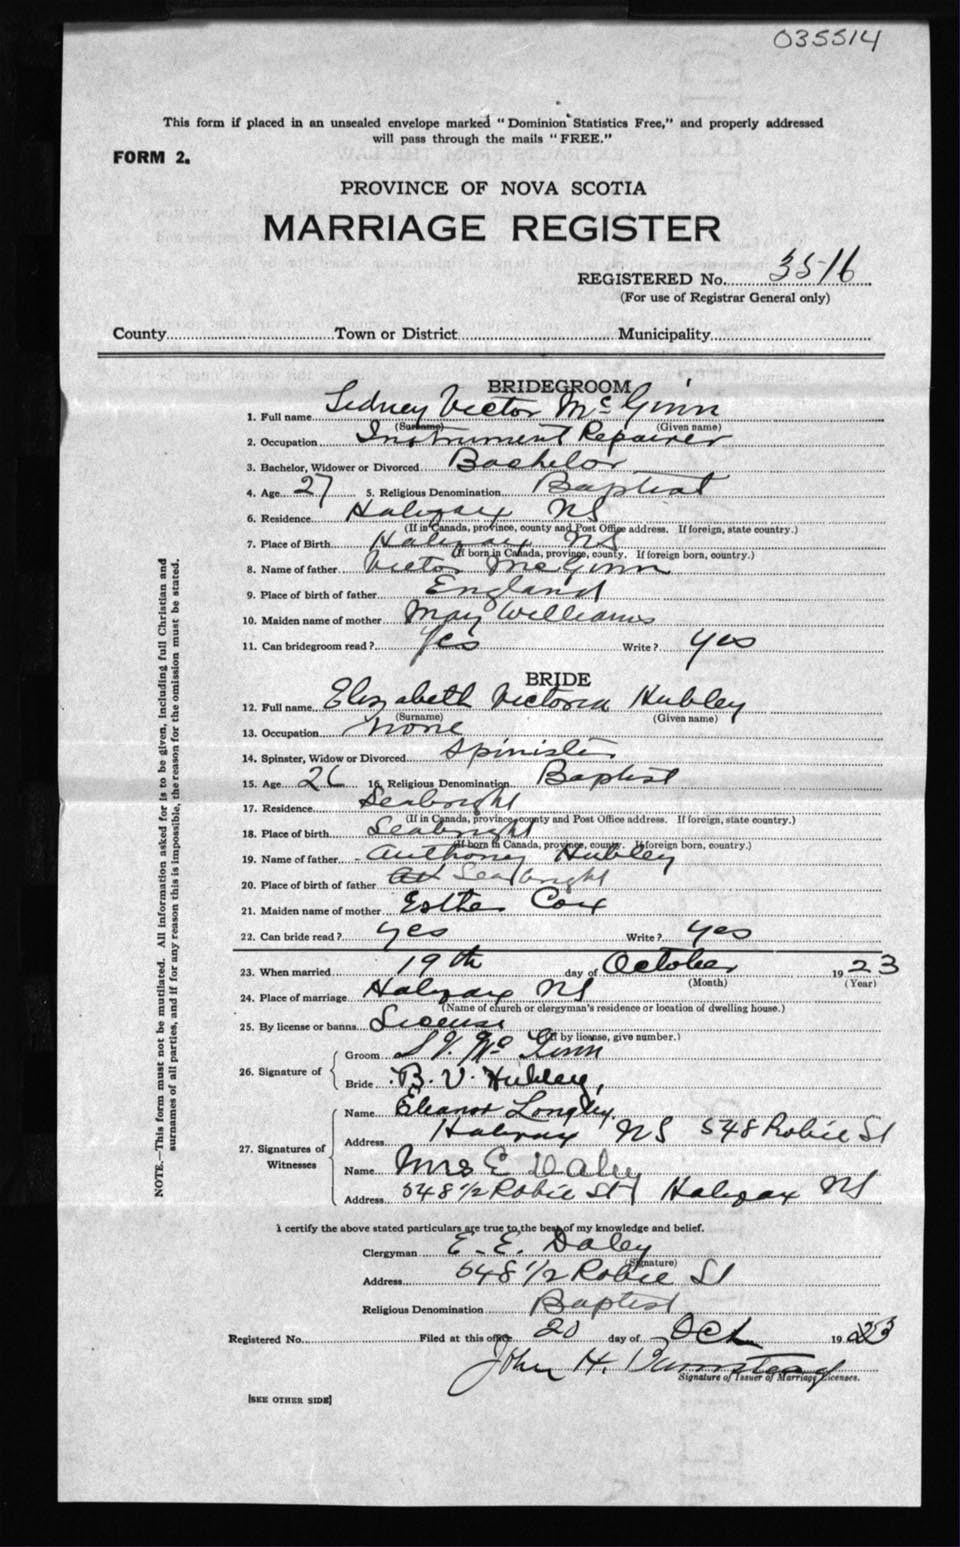 035514
This form if placed in an unsealed envelope marked "Dominion Statistics Free," and properly addressed
will pass through the mails "FREE."
FORM 2.
PROVINCE OF NOVA SCOTIA
MARRIAGE REGISTER
REGISTERED No. 3516
(For use of Registrar General only)
County Town or District Municipality
BRIDEGROOM
1. Full name Sidney Victor McGinn
(Surname) (Given name)
2. Occupation Instrument Repairer
3. Bachelor, Widower or Divorced Bachelor
4. Age 27 5. Religious Denomination Baptist
6. Residence Halifax NS
(If in Canada, province, county and Post Office address. If foreign, state country.)
7. Place of Birth Halifax NS
(If born in Canada, province, county. If foreign born, country.)
8. Name of father Victor McGinn
9. Place of birth of father England
10. Maiden name of mother May Williams
11. Can bridegroom read? Yes Write? Yes
BRIDE
12. Full name Elizabeth Victoria Hubley
(Surname) (Given name)
13. Occupation None
14. Spinster, Widow or Divorced Spinister
15. Age 26 16. Religious Denomination Baptist
17. Residence Seabright
(If in Canada, province, county and Post Office address. If foreign, state country.)
18. Place of birth Seabright
(If born in Canada, province, county. If foreign born, country.)
19. Name of father Anthony Hubley
20. Place of birth of father Seabright
21. Maiden name of mother Esther Cox
22. Can bride read? Yes Write? Yes
23. When married 19th day of October 1923
(Month) (Year)
24. Place of marriage Halifax NS
(Name of church or clergyman's residence or location of dwelling house.)
25. By license or banns License
(If by license, give number.)
26. Signature of
Groom S.V. McGinn
Bride B. V. Hubley,
27. Signatures of Witnesses
Name Eleanor Longley
Address Halifax NS 548 Robie St
Name Mrs E Daley
Address 548 1/2 Robie St Halifax NS
I certify the above stated particulars are true to the best of my knowledge and belief.
Clergyman E. E. Daley
(Signature)
Address 548 1/2 Robie St
Religious Denomination Baptist
Registered No. Filed at this office 20 day of Oct 1923
John H. Barnstead
Signature of Issuer of Marriage Licenses.
[SEE OTHER SIDE]
NOTE.—This form must not be mutilated. All information asked for is to be given, including full Christian and
surnames of all parties, and if for any reason this is impossible, the reason for the omission must be stated.